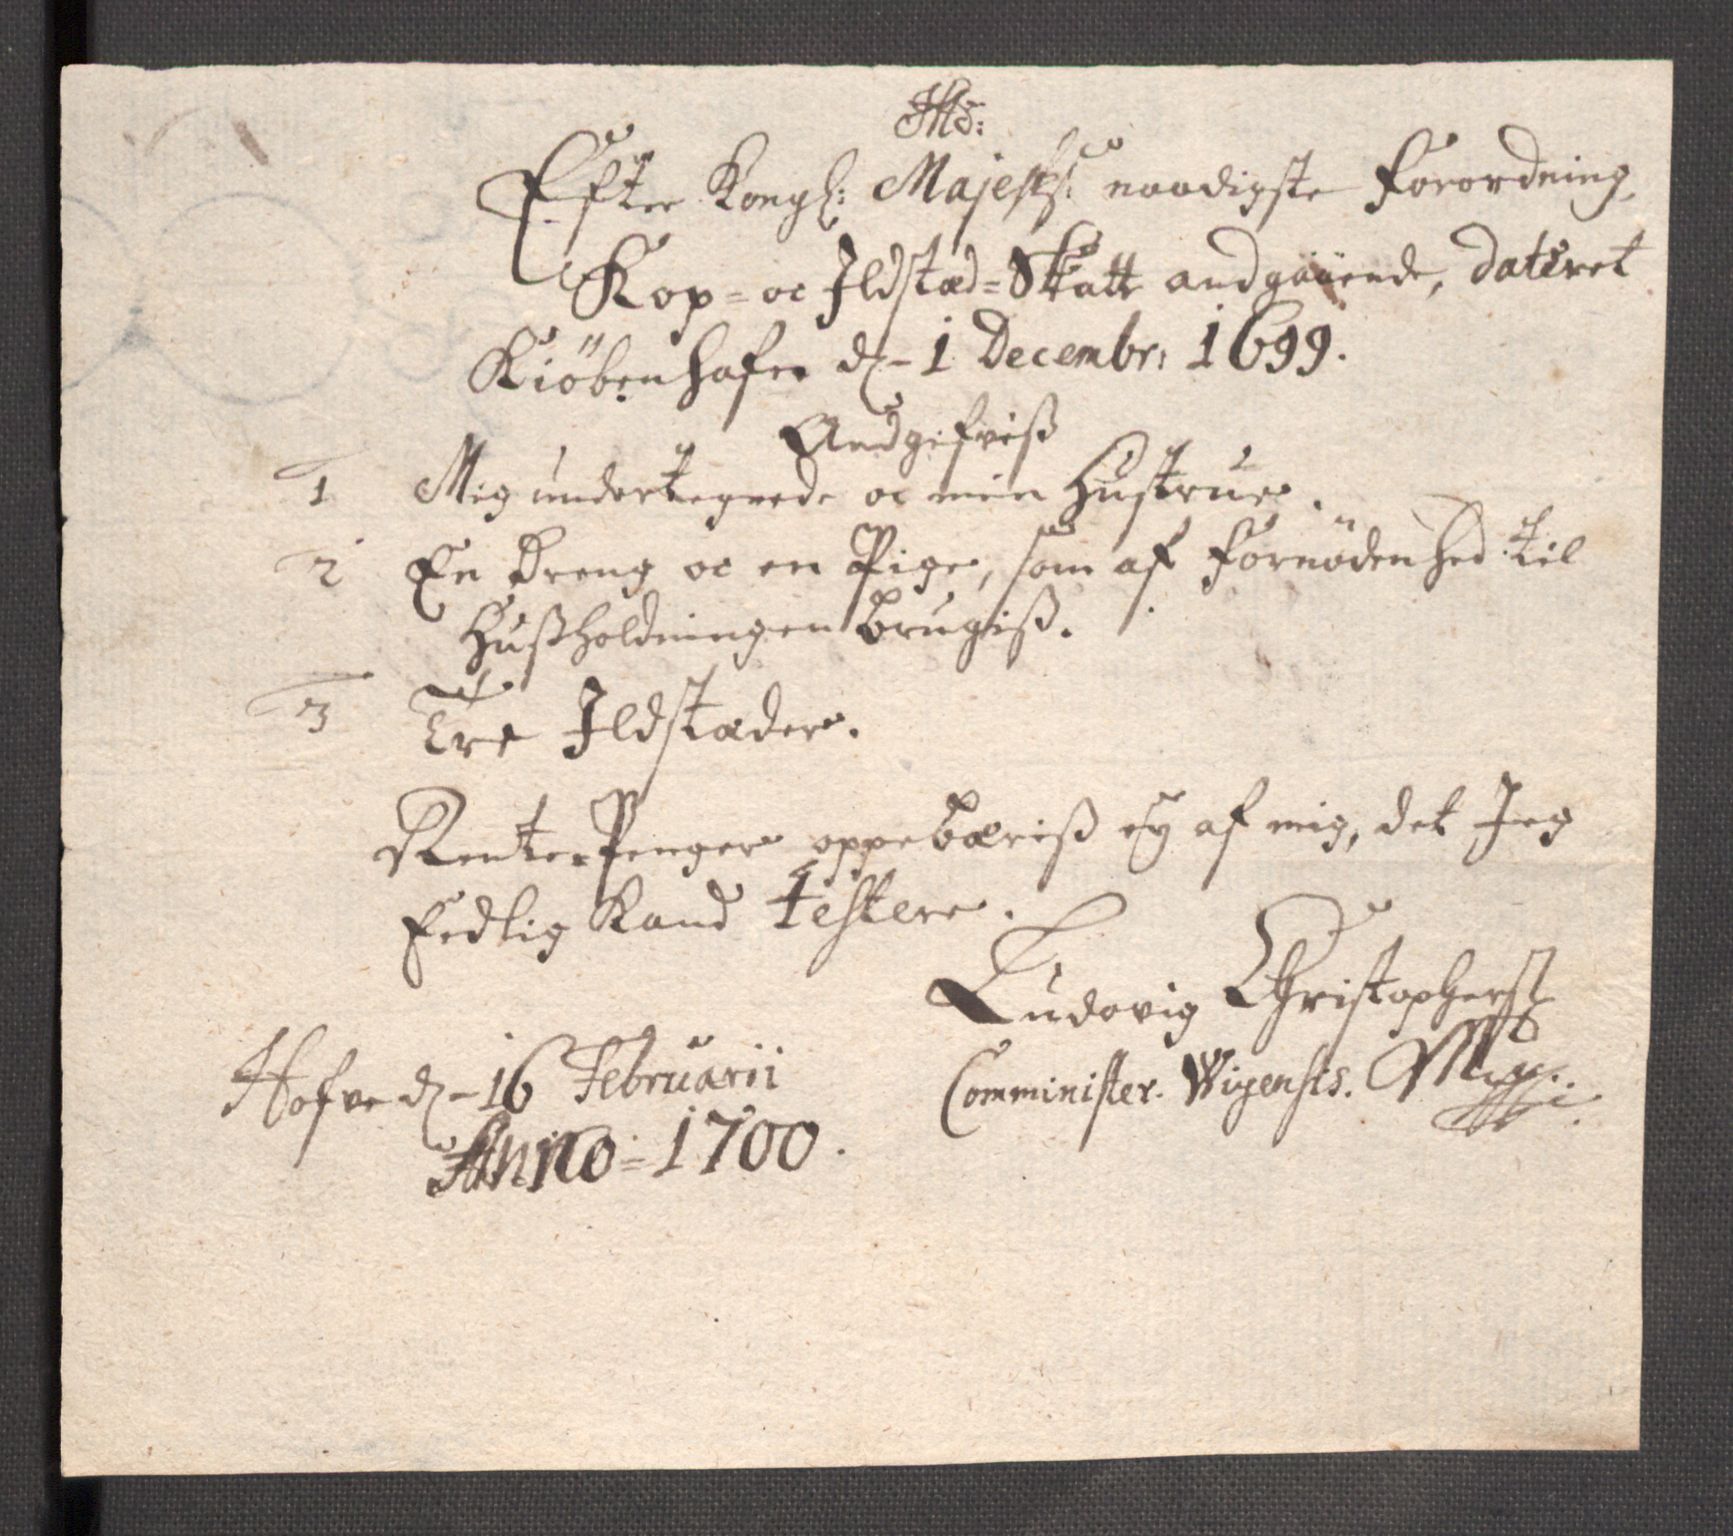 Efter Kongl: Majests: naadigste Forordning,
Kop= oc Ildstæd=Skatt andgaaende, dateret
Kiöbenhafn d. 1 Decembr: 1699.
Andgifveiß
1 Mig undertegnede oc min Hustrue.
2 En Dreng oc en Pige, som af Fornödenhed til
Hußholdningen brugiß.
3 Tre Ildstæder.
Rente-Penger oppebæriß ey af mig, det Jeg
Eedlig Kand testere.
Ludovig Christophersøn
Comminister. Wigensis. Mpp.
Hofve d. 16 Februarii
Anno = 1700.